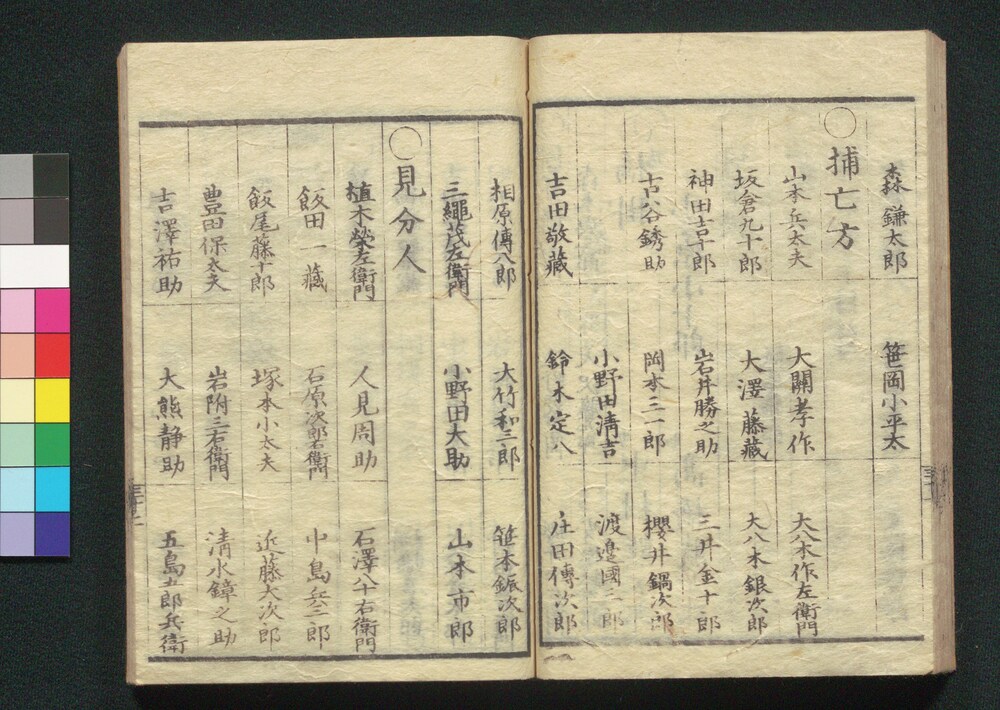 森鎌太郎 笹岡小平太
○捕亡方
山本兵太夫 大關孝作 大八木作左衛門
坂倉九十郎 大澤藤藏 大八木銀次郎
神田吉十郎 岩井勝之助 三井金十郎
古谷銹助 岡本三一郎 櫻井鍋次郎
小野田清吉 渡邉國三郎
吉田敬藏 鈴木定八 庄田傳次郎
相原傳八郎 大竹和三郎 笹本鋠次郎
三繩茂左衛門 小野田大助 山本市郎
○見分人
植木榮左衛門 人見周助 石澤八十右衛門
飯田一藏 石原次郎右衛門 中島兵三郎
飯尾藤十郎 塚本小太夫 近藤大次郎
豊田保太夫 岩附三右衛門 清水鐘之助
吉澤祐助 大熊静助 五島五郎兵衛
三十二